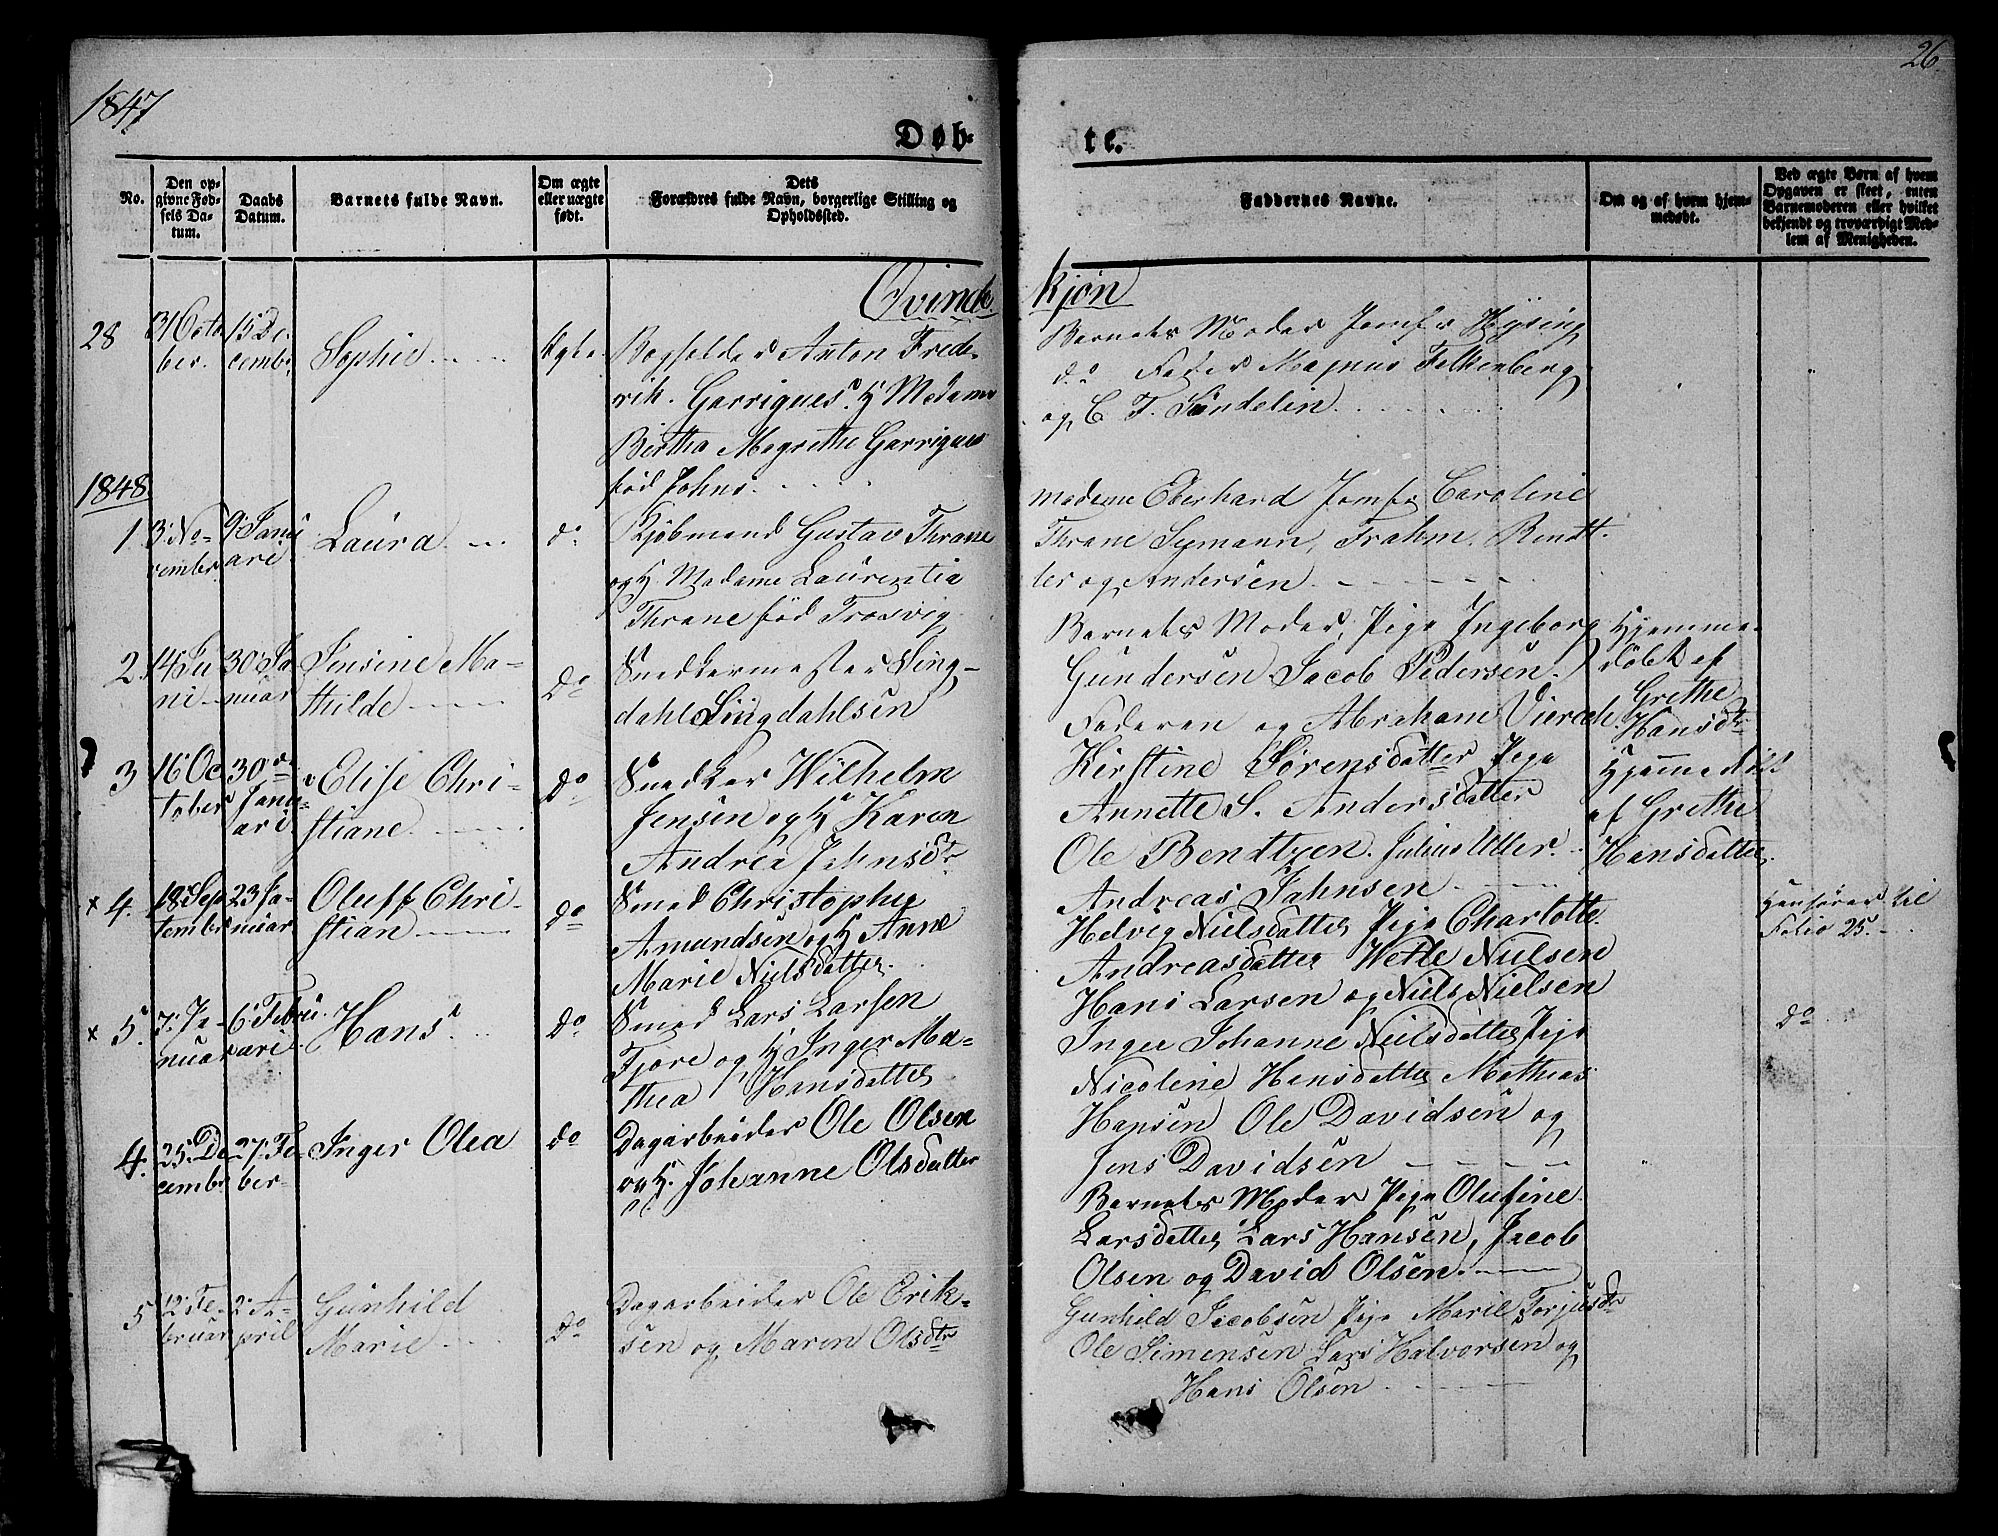 1847
26.
Døb-
te.
No.
Den op-
givne Fød-
sels Da-
tum.
Daabs
Datum.
Barnets fulde Navn.
Om ægte
eller uægte
født.
Dets
Forældres fulde Navn, borgerlige Stilling og
Opholdssted.
Faddernes Navne.
Om og af hvem hjem-
medøbt.
Ved ægte Børn af hvem
Opgaven er skeet, enten
Barnemoderen eller hvilket
bekjendt og troværdigt Med-
lem af Menigheden.
Qvinde
kjøn
28
31 Octo
ber.
15 De-
cembr.
Sophie
Ægte
Bogholder Anton Frede-
rik Garrigues & H Madame
Birtha Magrethe Garrigues
fød Johns.
Barnets Moder Jomfr Hysing
do Fader Magnus Falkenberg
og C. F. Sundelen
1848
1.
3 No-
vembr.
9 Janu
ari
Laura
do
Kjøbmand Gustav Thrane
og H Madame Laurentia
Thrane fød Trosvig
Madame Eberhard Jomfr Caroline
Thrane Symann, Frahm, Rendt-
ler og Andersen
2.
14 Ju
ni
30 Ja
nuar
Jensine Ma-
thilde
do
Snedkermester Ling-
dahl Lingdahlsen
Barnets Moder, Pige Ingeborg
Gundersen Jacob Pedersen.
Faderen og Abraham Vierech
Hjemme-
døbt af
Grethe
Hansdtr
3
16 Oc
tober
30
Janu-
ari
Elise Chri-
stiane
do
Snedker Wilhelm
Jensen og H Karen
Andrea Jahnsdtr
Kirstine Sørensdatter Pige
Annette S. Andersdatter
Ole Bendtzen. Julius Uller.
Andreas Jahnsen
Hjemmedøbt
af Grethe
Hansdatter
x 4.
18 Sep
tembr
23 Ja-
nuar
Oluff Chri-
stian
do
Smed Christopher
Amundsen og H Anne
Marie Nielsdatter
Helvig Nielsdatter Pige Charlotte
Andreasdatter Wetle Nielsen
Hans Larsen og Niels Nielsen
Henføres til
Folio 25.
x 5.
7 Ja-
nuar
6 Febru
ari
Hans
do
Smed Lars Larsen
Fjore og H Inger Ma-
thea Hansdatter
Inger Johanne Nielsdatter Pige
Nicoline Hansdatter Mathias
Hansen Ole Davidsen og
Jens Davidsen
do
4.
25 De
cembr
27 Fe-
ber
Inger Olea
do
Dagarbeider Ole Olsen
og H. Johanne Olsdatter
Barnets Moder Pige Olufine
Larsdatter Lars Hansen, Jacob
Olsen og David Olsen
5
12 Fe-
bruar
2 A-
pril
Gunhild
Marie
do
Dagarbeider Ole Erik-
sen og Maren Olsdtr
Gunhild Jacobsen Pige Marie Torjusdtr
Ole Simensen Lars Halvorsen og
Hans Olsen